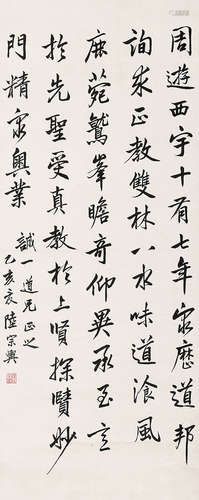 周遊西宇十有七年窮歷道邦
詢求正教雙林八水味道湌風
鹿菀鷲峯瞻奇仰異承至言
於先聖受真教於上賢探賾妙
門精窮奧業
誠一道兄正之
乙亥夏陸宗輿